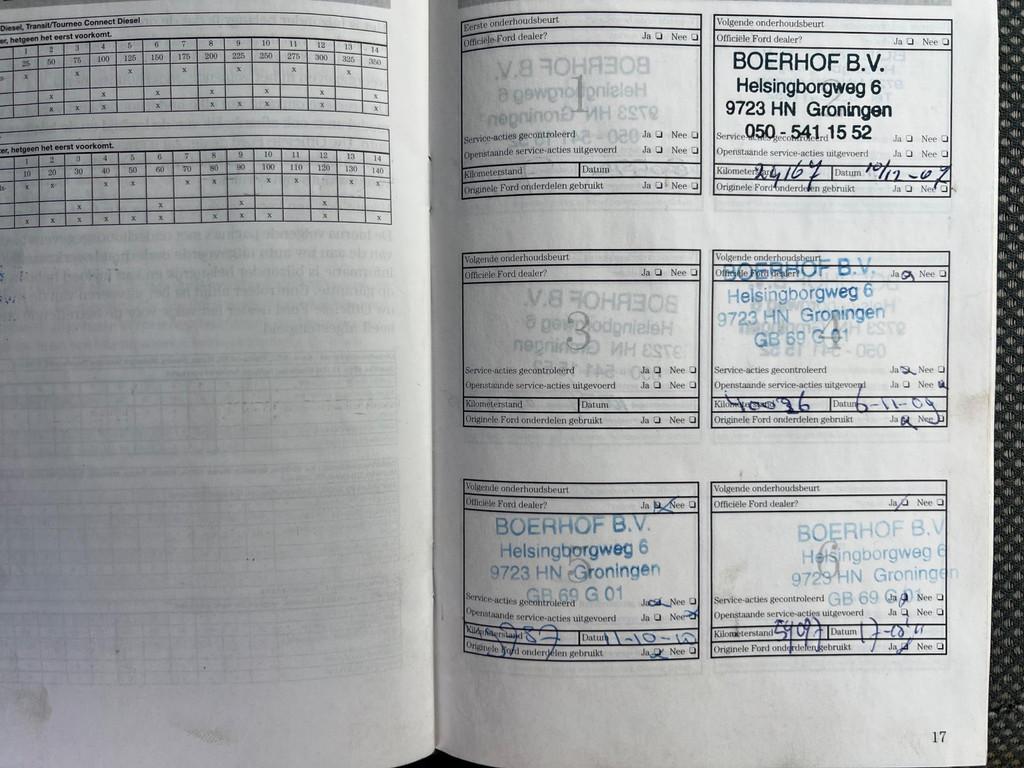 Diesel, Transit/Tourneo Connect Diesel
er, hetgeen het eerst voorkomt.
1 2 3 4 5 6 7 8 9 10 11 12 13 14
25 50 75 100 125 150 175 200 225 250 275 300 325 350
x x x x x
x x x x x
x x x x x x x
ter, hetgeen het eerst voorkomt.
1 2 3 4 5 6 7 8 9 10 11 12 13 14
10 20 30 40 50 60 70 80 90 100 110 120 130 140
x x x x x x x
x x x x
x x x x x x x
Eerste onderhoudsbeurt
Officiële Ford dealer? Ja Nee
1
Service-acties gecontroleerd Ja Nee
Openstaande service-acties uitgevoerd Ja Nee
Kilometerstand Datum
Originele Ford onderdelen gebruikt Ja Nee
Volgende onderhoudsbeurt
Officiële Ford dealer? Ja Nee
BOERHOF B.V.
Helsingborgweg 6
9723 HN Groningen
050 - 541 15 52
Service-acties gecontroleerd Ja Nee
Openstaande service-acties uitgevoerd Ja Nee
Kilometerstand 24167 Datum 10/12-07
Originele Ford onderdelen gebruikt Ja Nee
Volgende onderhoudsbeurt
Officiële Ford dealer? Ja Nee
3
Service-acties gecontroleerd Ja Nee
Openstaande service-acties uitgevoerd Ja Nee
Kilometerstand Datum
Originele Ford onderdelen gebruikt Ja Nee
Volgende onderhoudsbeurt
BOERHOF B.V.
Officiële Ford dealer? Ja Nee
Helsingborgweg 6
9723 HN Groningen
GB 69 G 01
4
Service-acties gecontroleerd Ja Nee
Openstaande service-acties uitgevoerd Ja Nee
Kilometerstand Datum 6-11-09
Originele Ford onderdelen gebruikt Ja Nee
Volgende onderhoudsbeurt
Officiële Ford dealer? Ja Nee
BOERHOF B.V.
Helsingborgweg 6
9723 HN Groningen
GB 69 G 01
5
Service-acties gecontroleerd Ja Nee
Openstaande service-acties uitgevoerd Ja Nee
Kilometerstand Datum 11-10-10
Originele Ford onderdelen gebruikt Ja Nee
Volgende onderhoudsbeurt
Officiële Ford dealer? Ja Nee
BOERHOF B.V
Helsingborgweg 6
9723 HN Groningen
6
Service-acties gecontroleerd GB 69 G 01 Ja Nee
Openstaande service-acties uitgevoerd Ja Nee
Kilometerstand Datum
Originele Ford onderdelen gebruikt Ja Nee
17